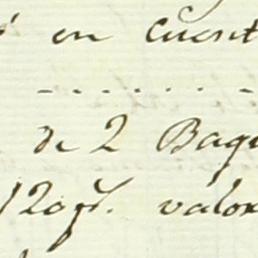 en Cuent
- - . . . . . -
de 2 Baqu
120 ps. valor